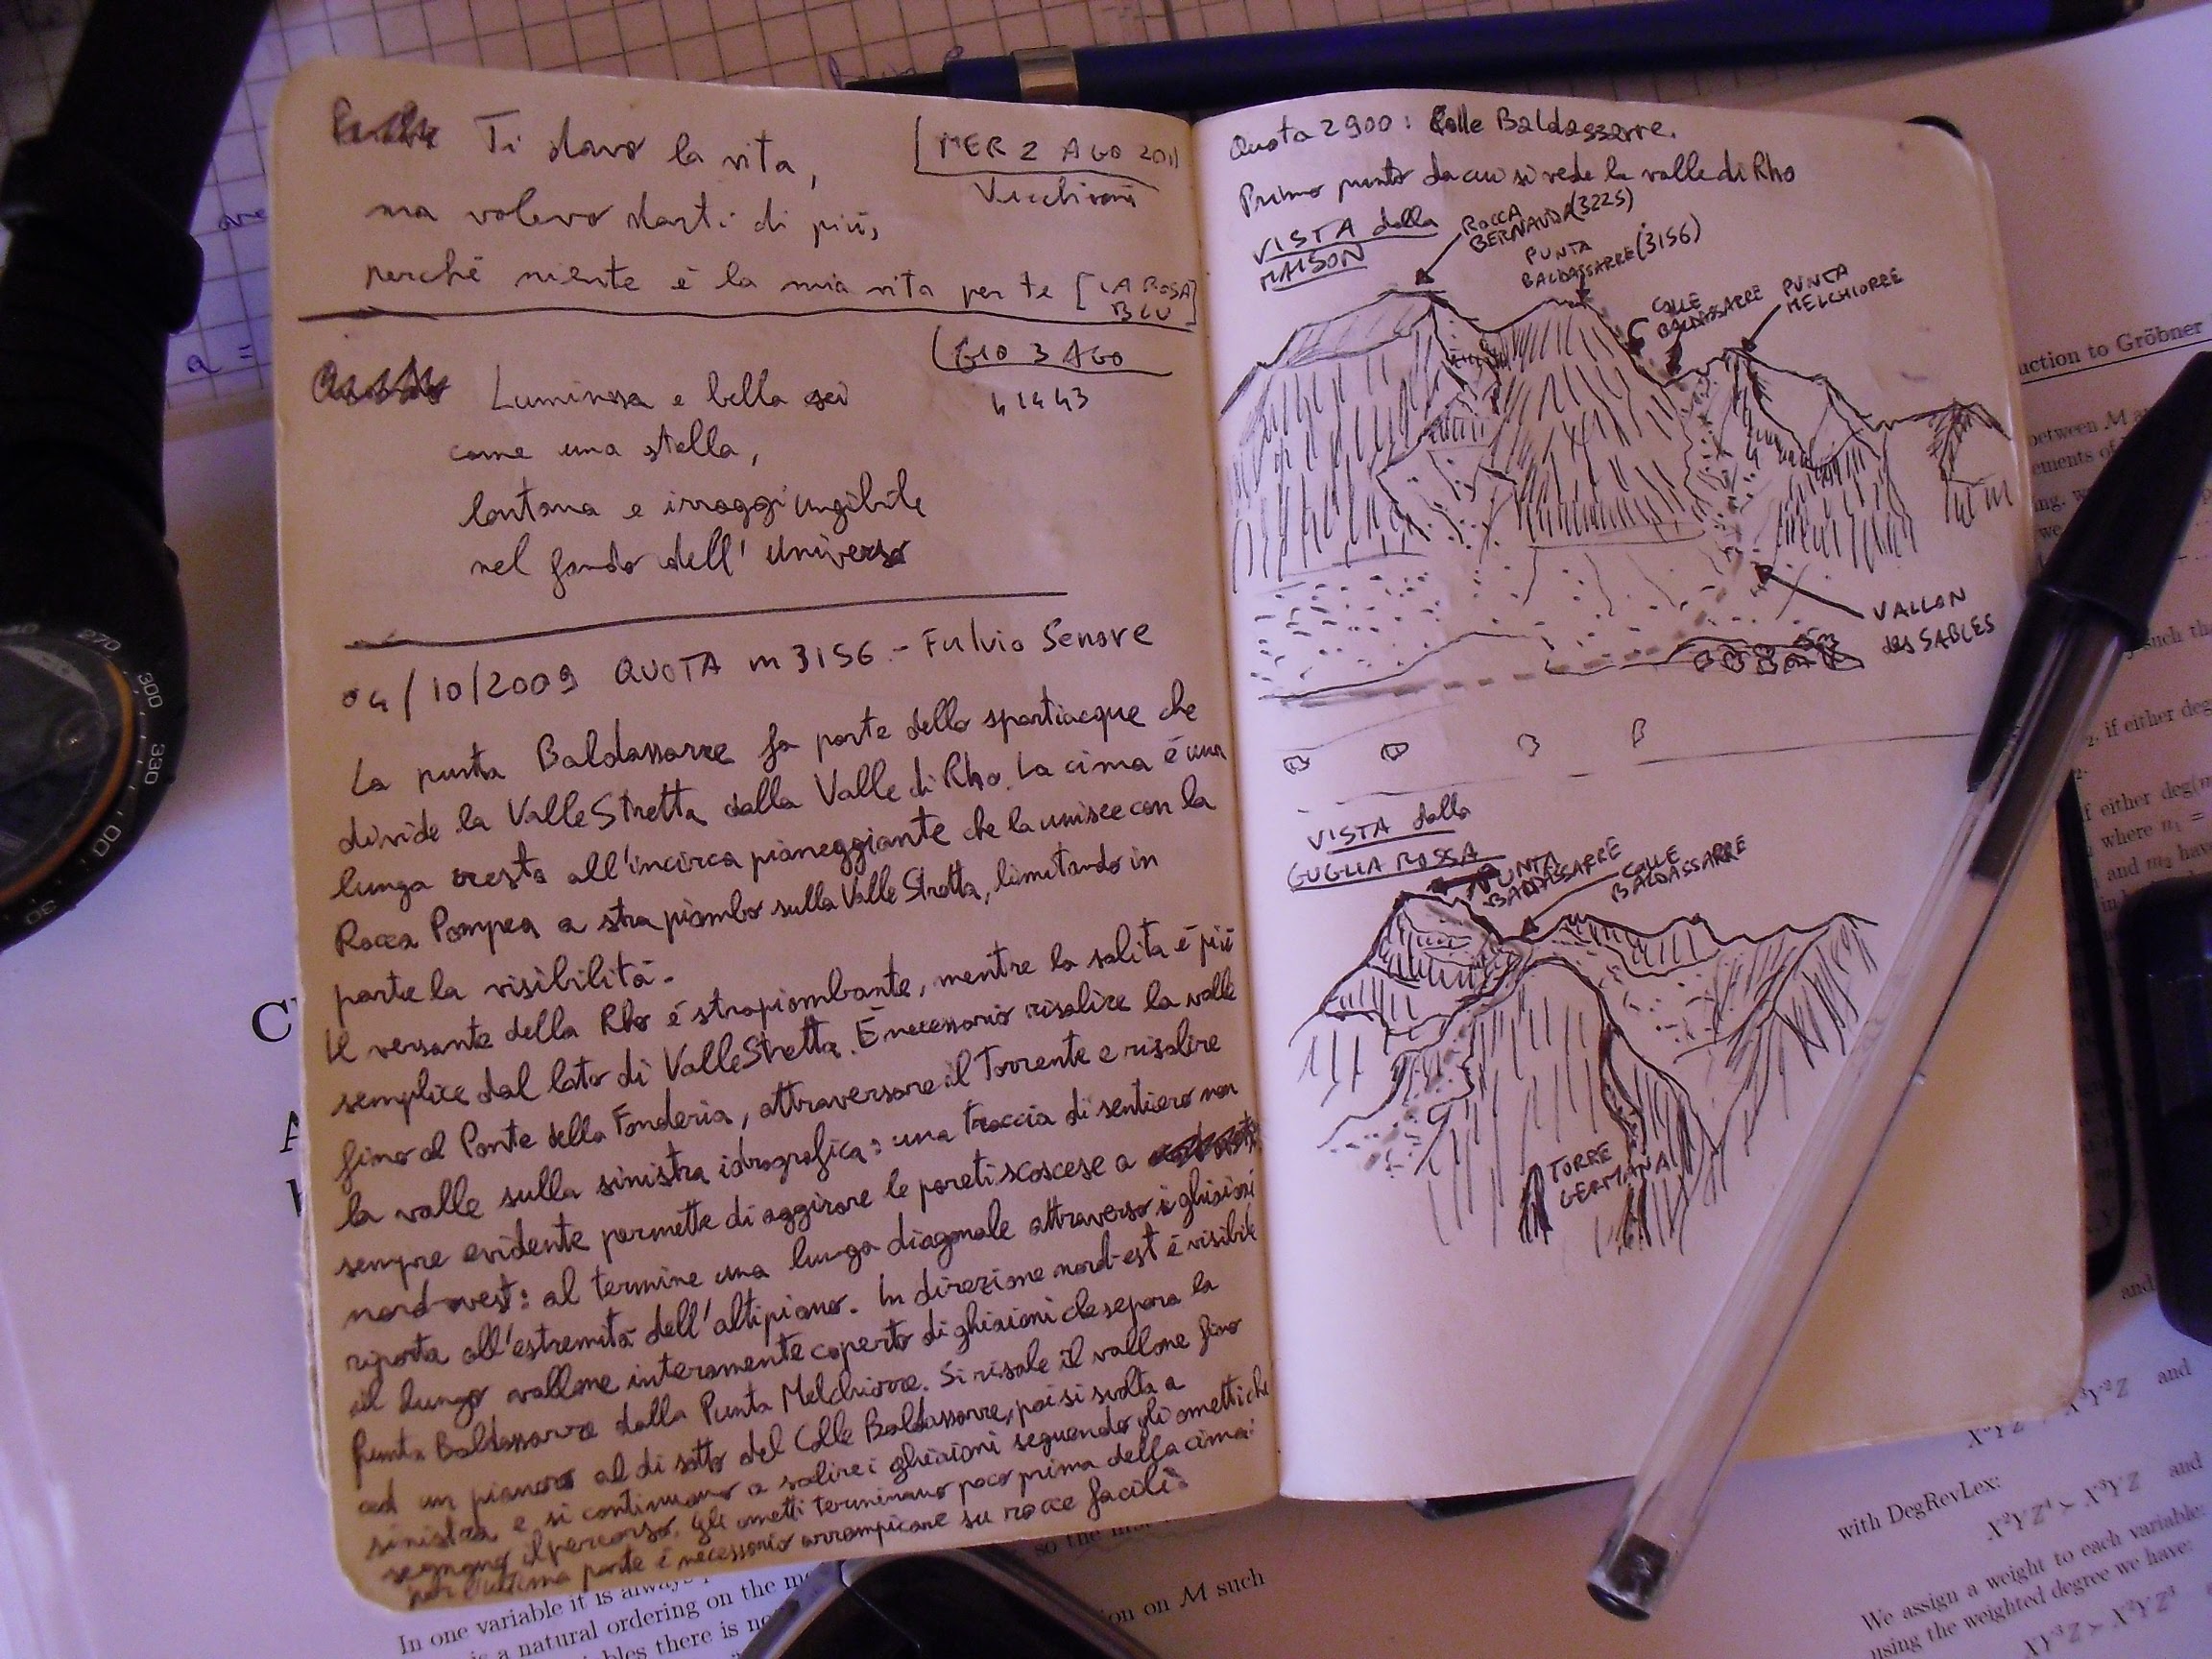 Ti davo la vita,
[MER 2 AGO 2011
Vecchioni
ma volevo darti di più,
perché niente è la mia vita per te [LA ROSA
BLU]
(GIO 3 AGO
41443
Luminosa e bella sei
come una stella,
lontana e irraggiungibile
nel fondo dell'universo
04/10/2009 QUOTA m 3156 - Fulvio Senore
La punta Baldassarre fa parte dello spartiacque che
divide la Valle Stretta dalla Valle di Rho. La cima è una
lunga cresta all'incirca pianeggiante che la unisce con la
Rocca Pompea a strapiombo sulla Valle Stretta, limitando in
parte la visibilità.
Il versante della Rho è strapiombante, mentre la salita è più
semplice dal lato di Valle Stretta. È necessario risalire la valle
fino al Ponte della Fonderia, attraversare il Torrente e risalire
la valle sulla sinistra idrografica: una traccia di sentiero non
sempre evidente permette di aggirare le pareti scoscese a
nord-ovest: al termine una lunga diagonale attraverso i ghiaioni
riporta all'estremità dell'altipiano. In direzione nord-est è visibile
il lungo vallone interamente coperto di ghiaioni che separa la
Punta Baldassarre dalla Punta Melchiorre. Si risale il vallone fino
ad un pianoro al di sotto del Colle Baldassarre, poi si svolta a
sinistra e si continuano a salire i ghiaioni seguendo gli ometti che
segnano il percorso. Gli ometti terminano poco prima della cima:
per l'ultima parte è necessario arrampicare su rocce facili.
Quota 2900: Colle Baldassarre.
Primo punto da cui si vede la valle di Rho
VISTA dalla
MAISON
ROCCA
BERNAUDA (3225)
PUNTA
BALDASSARRE (3156)
COLLE
BALDASSARRE
PUNTA
MELCHIORRE
VALLON
des SABLES
VISTA dalla
GUGLIA ROSSA
PUNTA
BALDASSARRE
COLLE
BALDASSARRE
TORRE
GERMANA
270
300
330
30
a =
uction to Gröbner
between M
ements of
ing. w
we
such tha
2, if either deg(
f either deg(m
where n₁ =
and m₂ hav
and
with DegRevLex:
X²YZ⁴ ≻ X³YZ and
We assign a weight to each variable:
using the weighted degree we have:
XY³Z ≻ X²YZ³
In one variable it is always
is a natural ordering on the mo
bles there is no
so the
ion on M such